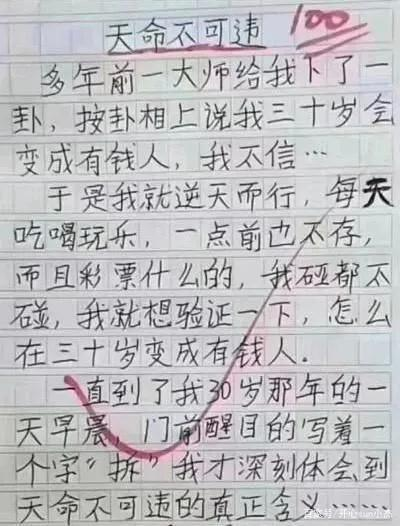 天命不可违
100
多年前一大师给我下了一
卦，按卦相上说我三十岁会
变成有钱人，我不信…
于是我就逆天而行，每天
吃喝玩乐，一点前也不存，
而且彩票什么的，我碰都不
碰，我就想验证一下，怎么
在三十岁变成有钱人．
一直到了我30岁那年的一
天早晨，门前醒目的写着一
个字“拆”我才深刻体会到
天命不可违的真正含义